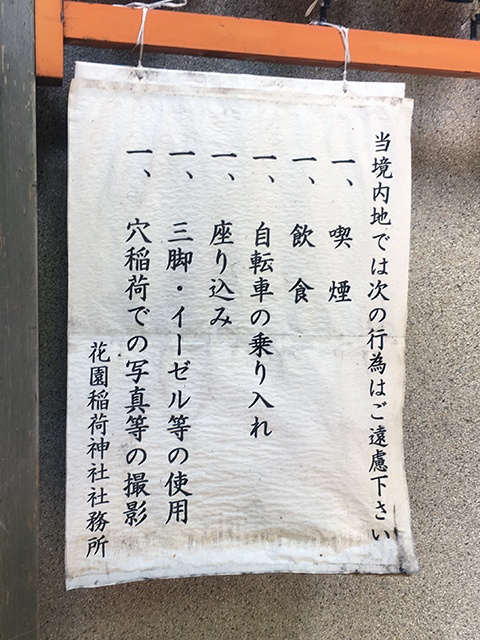 当境内地では次の行為はご遠慮下さい
一、喫煙
一、飲食
一、自転車の乗り入れ
一、座り込み
一、三脚・イーゼル等の使用
一、穴稲荷での写真等の撮影
花園稲荷神社社務所